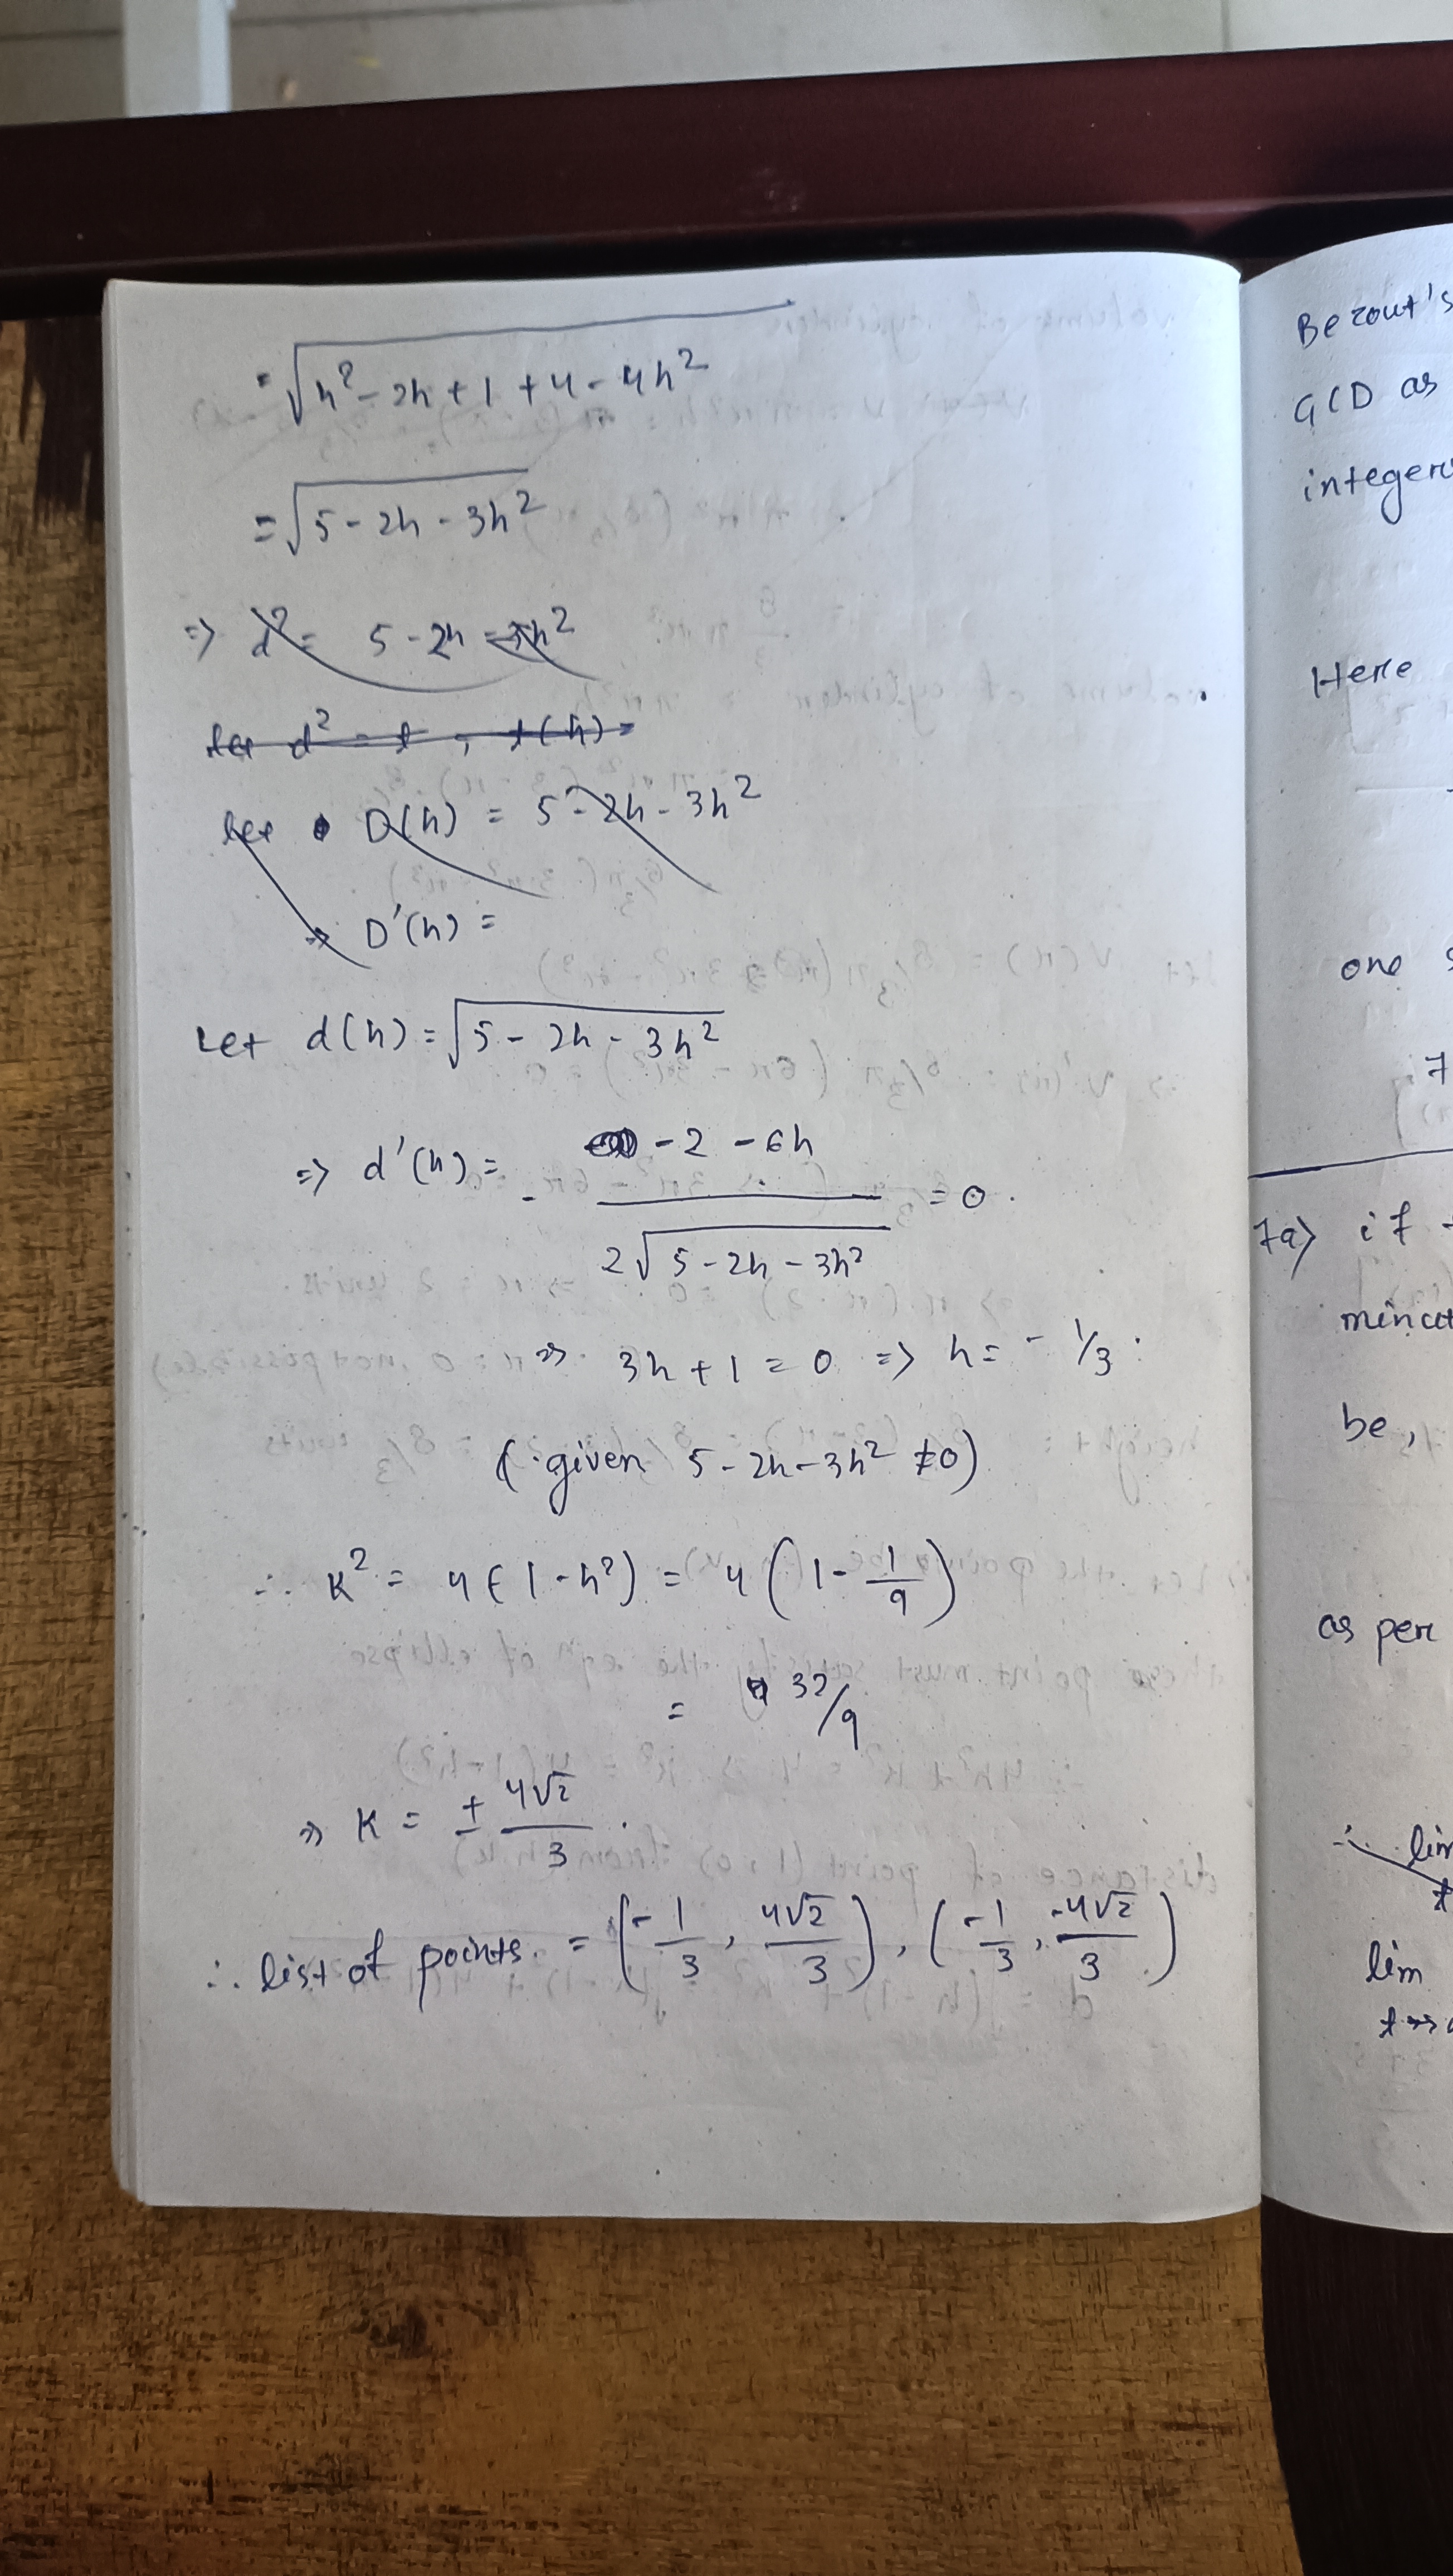 = √(h² - 2h + 1 + 4 - 4h²)
= √(5 - 2h - 3h²)
=> d² = 5 - 2h - 3h²
let d² = t , t(h) =
let D(h) = 5 - 2h - 3h²
=> D'(h) =
Let d(h) = √(5 - 2h - 3h²)
=> d'(h) = (-2 - 6h) / (2√(5 - 2h - 3h²)) = 0.
=> 3h + 1 = 0 => h = - 1/3.
(given 5 - 2h - 3h² ≠ 0)
∴ K² = 4(1 - h²) = 4(1 - 1/9)
= 32/9
=> K = ± 4√2/3.
∴ list of points. = (-1/3, 4√2/3), (-1/3, -4√2/3)
Bezout's
GCD as
Here
one
7
7a) if
be,
as per
∴ lim
lim